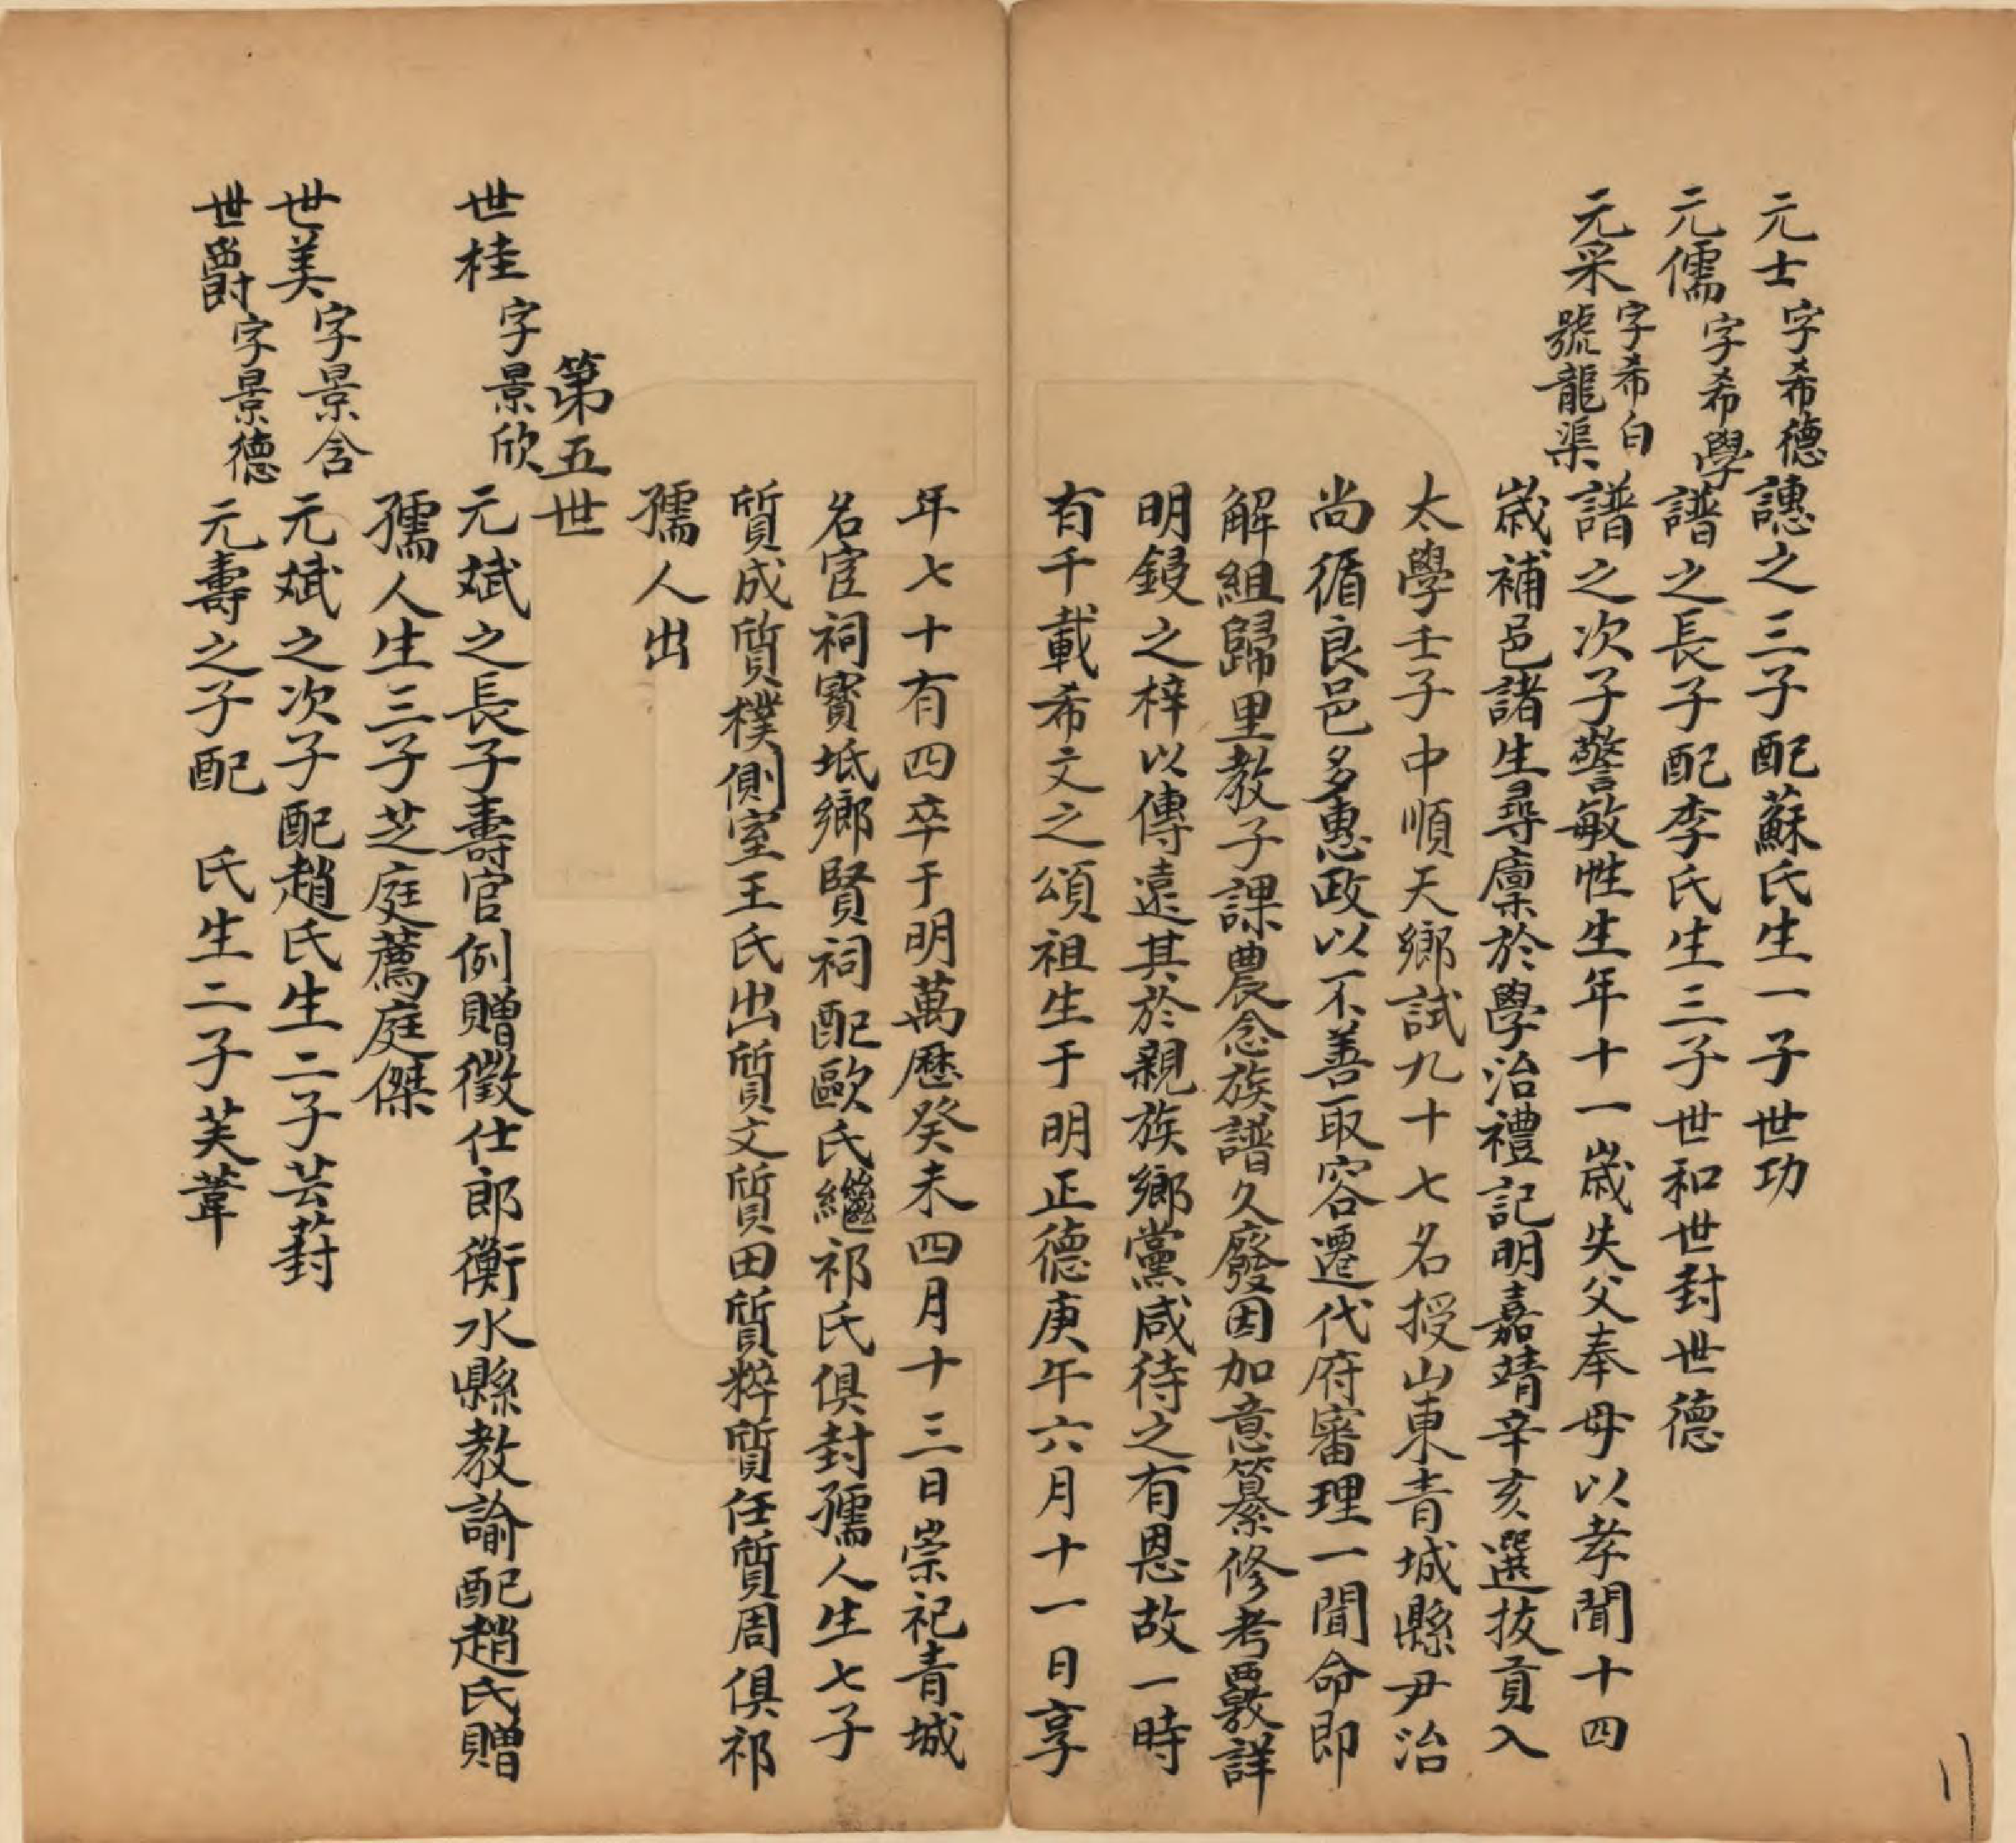 元士字希德譓之三子配蘇氏生一子世功
元儒字希學譜之長子配李氏生三子世和世封世德
元采字希白號龍渠譜之次子警敏性生年十一歲失父奉母以孝聞十四
歲補邑諸生尋廩於學治禮記明嘉靖辛亥選拔貢入
太學壬子中順天鄉試九十七名授山東青城縣尹治
尚循良邑多惠政以不善取容遷代府審理一聞命即
解組歸里教子課農念族譜久廢因加意纂修考覈詳
明鋟之梓以傳遠其於親族鄉黨咸待之有恩故一時
有千載希文之頌祖生于明正德庚午六月十一日享
年七十有四卒于明萬歷癸未四月十三日崇祀青城
名宦祠寶坻鄉賢祠配歐氏繼祁氏俱封孺人生七子
質成質樸側室王氏出質文質田質粹質任質周俱祁
孺人出
第五世
世桂字景欣元斌之長子壽官例贈徵仕郎衡水縣教諭配趙氏贈
孺人生三子芝庭薦庭傑
世美字景含元斌之次子配趙氏生二子芸葑
世爵字景德元壽之子配 氏生二子芙葦